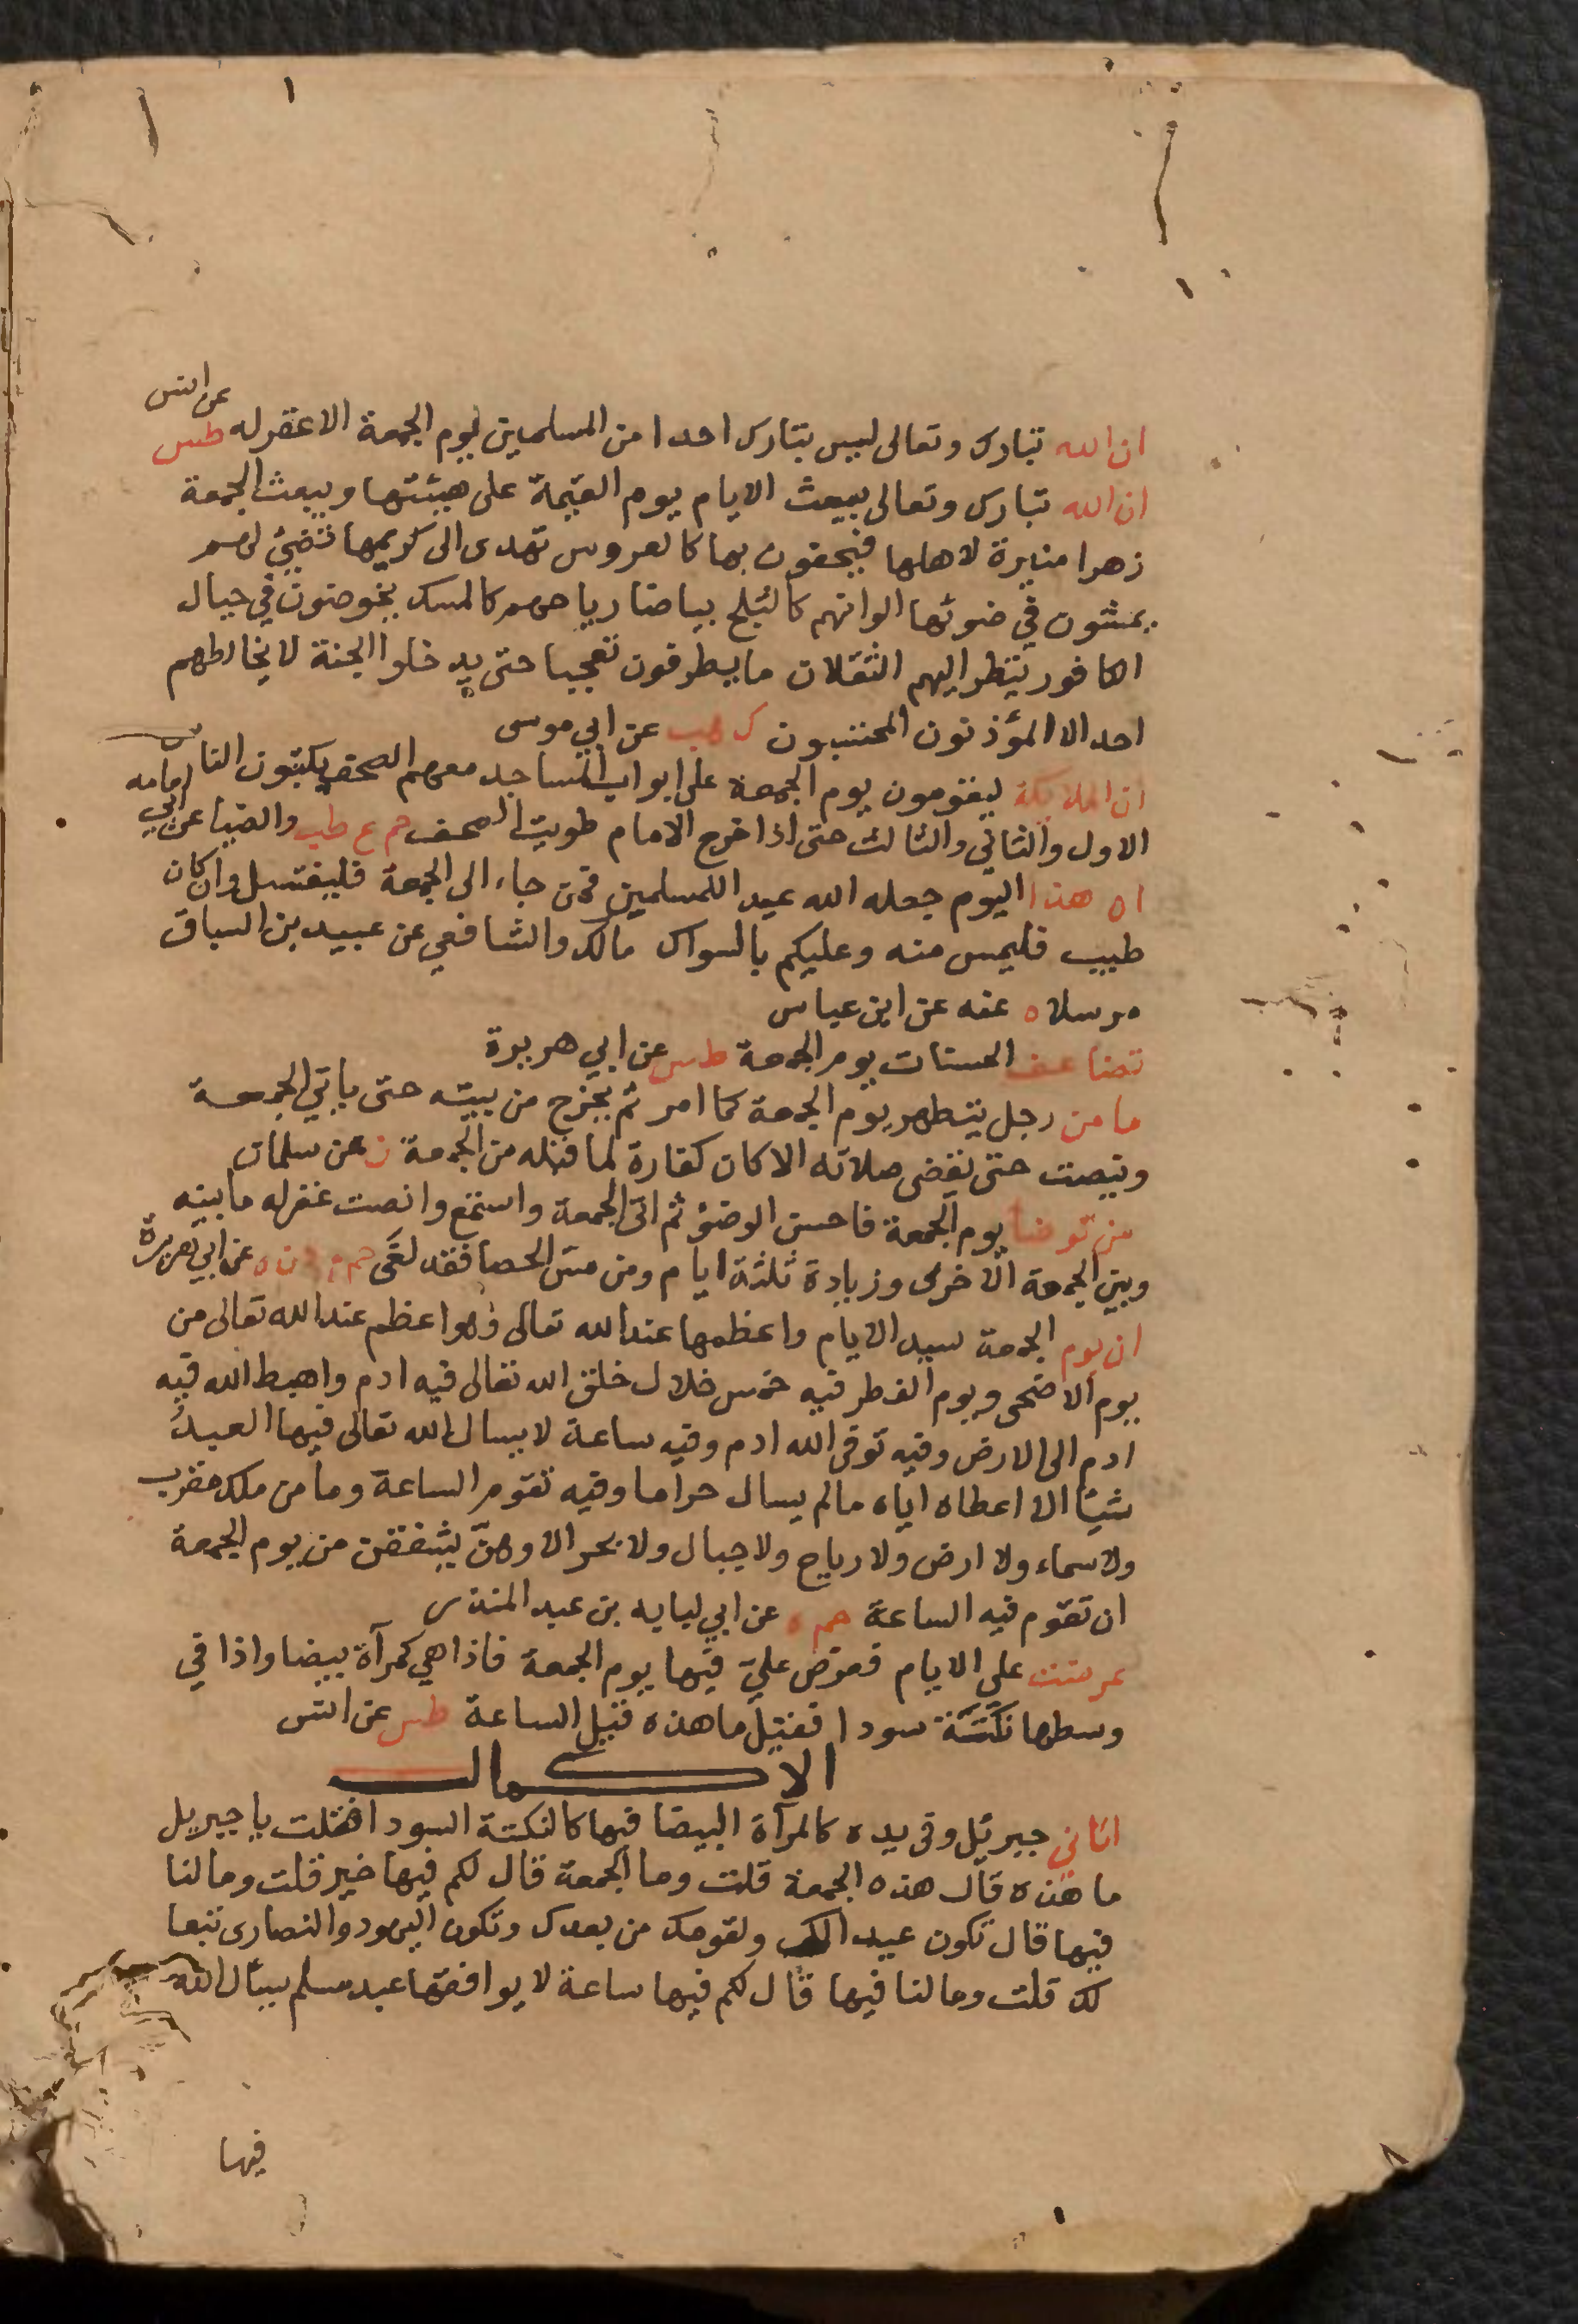 ان الله تبارك وتعالى ليس بتارك احدا من المسلمين يوم الجمعة الا غفر له طس عن انس
ان الله تبارك وتعالى يبعث الايام يوم القيمة على هيئتها ويبعث الجمعة
زهرا منيرة لاهلها فيحفون بها كالعروس تهدى الى كريمها تضيئ لهم
يمشون في ضوئها الوانهم كالثلج بياضا رياحهم كالمسك يخوضون في جبال
الكافور ينظر اليهم الثقلان ما يطرقون تعجبا حتى يدخلوا الجنة لا يخالطهم
احد الا المؤذنون المحتسبون ك هب عن ابي موسى
ان الملايكة ليقومون يوم الجمعة على ابواب المساجد معهم الصحف يكتبون الناس
الاول والثاني والثالث حتى اذا خرج الامام طويت الصحف حم ع طب والضيا عن ابي امامه
ان هذا اليوم جعله الله عيد اللمسلمين فمن جاء الى الجمعة فليغتسل وان كان
طيب فليمس منه وعليكم بالسواك مالك والشافعي عن عبيد بن السباق
مرسلا ه عنه عن ابن عباس
تضاعف الحسنات يوم الجمعة طس عن ابي هريرة
ما من رجل يتطهر يوم الجمعة كما امر ثم يخرج من بيته حتى ياتي الجمعة
وينصت حتى يقضى صلاته الا كان كفارة لما قبله من الجمعة ن عن سلمان
من توضا يوم الجمعة فاحسن الوضؤ ثم اتى الجمعة واستمع وانصت غفر له ما بينه
وبين الجمعة الاخرى وزيادة ثلثة ايام ومن مس الحصا فقد لغى حم م د ت ه عن ابي هريرة
ان يوم الجمعة سيد الايام واعظمها عند الله تعالى وهو اعظم عند الله تعالى من
يوم الاضحى ويوم الفطر فيه خمس خلال خلق الله تعالى فيه ادم واهبط الله فيه
ادم الى الارض وفيه توفى الله ادم وفيه ساعة لا يسال الله تعالى فيها العبد
شيئا الا اعطاه اياه مالم يسال حراما وفيه تقوم الساعة وما من ملك مقرب
ولا سماء ولا ارض ولا رياح ولا جبال ولا بحر الا وهن يشفقن من يوم الجمعة
ان تقوم فيه الساعة حم ه عن ابي لبابه بن عبد المنذر
عرضت على الايام فعرض علي فيها يوم الجمعة فاذا هي كمرآة بيضا واذا في
وسطها نكتة سودا فقيل ما هذه قيل الساعة طس عن انس
الاكمال
اتاني جبرئل وفى يده كالمرآة البيضا فيها كالنكتة السودا فقلت يا جبريل
ما هذه قال هذه الجمعة قلت وما الجمعة قال لكم فيها خير قلت وما لنا
فيها قال تكون عيدا لك ولقومك من بعدك وتكون اليهود والنصارى تبعا
لك قلت وما لنا فيها قال لكم فيها ساعة لا يوافقها عبد مسلم يسال الله
فيها